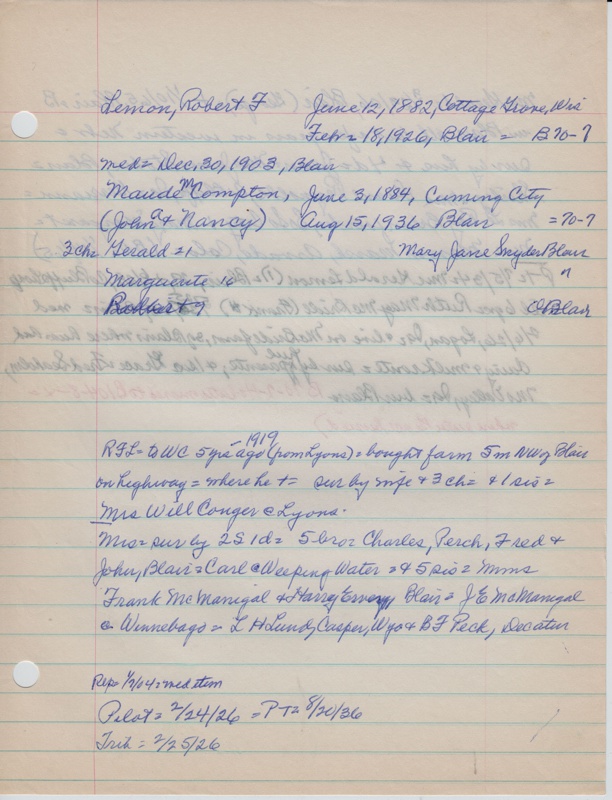 Lemon, Robert F June 12, 1882, Cottage Grove, Wis
Feb = 18, 1926, Blair = B 70-7
med = Dec, 30, 1903, Blair
Maude M Compton, June 3, 1884, Cuming City
(John a + Nancy) Aug 15, 1936 Blair = 70-7
3 ch = Herald = 1 Mary Jane Snyder Blair
Marguerite 16 "
Robert 9 O Blair
RFL = to WC 5 yrs ago 1919 (from Lyons) = bought farm 5 m NW of Blair
on highway = where he + = sur by wife + 3 ch = + 1 sis =
Mrs Will Conger @ Lyons.
Mrs = sur by 2 S 1 d = 5 bros Charles, Perch, Fred +
John, Blair = Carl @ Weeping Water = + 5 sis = Mmes
Frank McManigal + Harry Blair = J E McManigal
@ Winnebago = L H Lund, Casper, Wyo + B F Peck, Decatur
Rep = 1/7/04 = med item
Pilot = 2/24/26 = PT = 8/20/36
Trib = 2/25/26